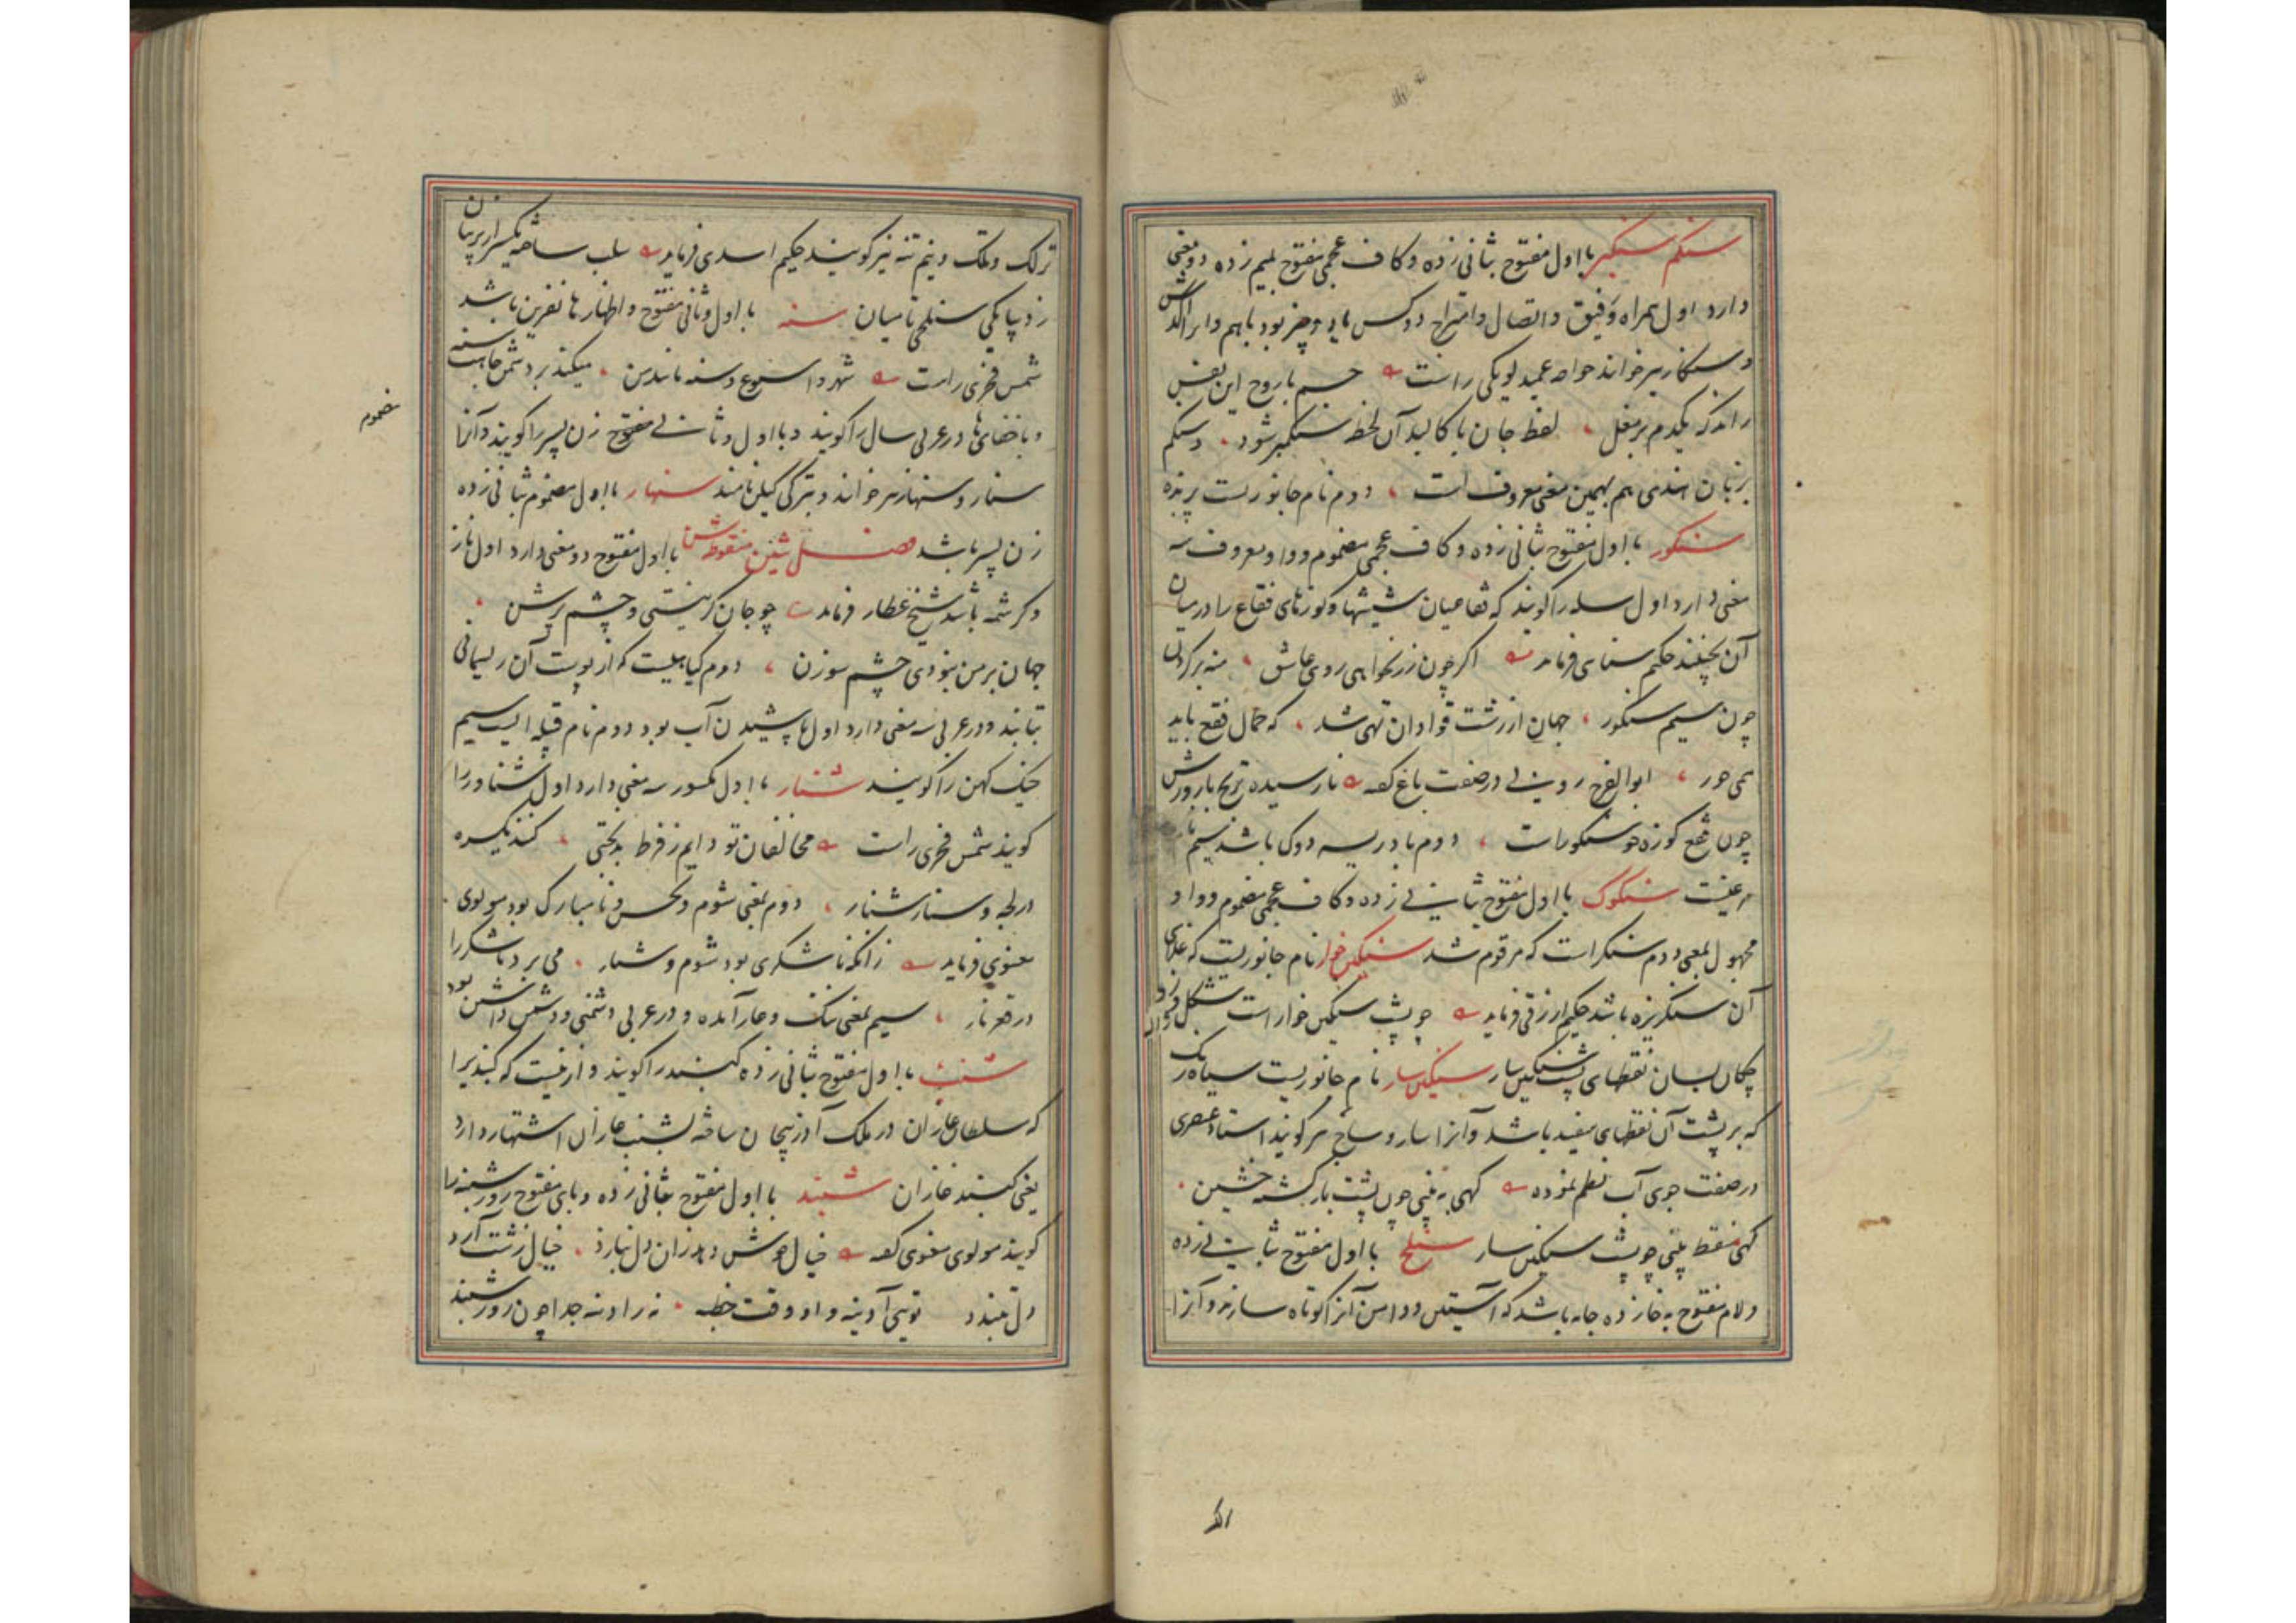 سنکم سنکمبر با اول مفتوح بثانی زده و کاف عجمی مفتوح بمیم زده دو معنی
دارد اول همراه و رفیق و اتصال و امتزاج دو کس یا دو چیز بود باهم و انرا الکدش
و سنکار نیز خوانند خواجه عمید لوبکی راست جسم با روح این نفس
راند که یکدم بر مغل لفظ جان با کالبد آن لحظه سنکمبر شود و سنکم
بزبان هندی هم بهمین معنی معروف است دوم نام جانوریست پرنده
سنکور با اول مفتوح بثانی زده و کاف عجمی مضموم و واو معروف سه
معنی دارد اول سله را کویند که فقاعیان شیشها و کوزهای فقاع را در میان
آن بچینند حکیم سنایی فرماید اکر چون زر نخواهی روی عاشق منه بر کردن
چون سیم سنکور جهان از زشت قوادان تهی شد که حمال فقع باید
همی حور ابوالفرج رونی در صفت باغ کفته نارسیده ترنج بارورش
چون فقع کوزه و سنکور است دوم بادریسه دوک باشد سیم نام
مرغیست سنکوک با اول مفتوح بثانی زده و کاف عجمی مضموم و واو
مجهول بمعنی دوم سنکر است که مرقوم شد سنکین خوار نام جانوریست که غذای
آن سنکریزه باشد حکیم ازرقی فرماید چو پشت سنکین خوار است شکل
چکان بسان نقطهای پشت سنکین سار سنکین سار نام جانوریست سیاه رنک
که بر پشت آن نقطهای سفید باشد و آنرا سار و سارج نیز کویند استاد عنصری
در صفت جوی آب نظم نموده کهی به بینی چون پشت باز کشته خشین
کهی منقط بینی چو پشت سنکین سار سنلخ با اول مفتوح بثانی زده
و لام مفتوح به خا زده جامه باشد که آستین و دامن آنرا کوتاه سازند و آنرا
ترلک
ترلک و تلک و نیم تنه نیز کویند حکیم اسدی فرماید سلب ساخته یکسر از پرنیان
ز دیبا یکی سنلخی تا میان سنه با اول و ثانی مفتوح و اظهار ها نفرین باشد
شمس فخری راست شهر و اسبوع و سنه ماند من میکند بر دشمن جاهت سنه
و باخفای ها در عربی سال را کویند و با اول و ثانی مفتوح زن پسر را کویند و آنرا
مضموم
سنار و سنهار نیز خوانند و بترکی کیلن نامند سنهار با اول مضموم بثانی زده
زن پسر باشد فصل شین منقوطه شن با اول مفتوح دو معنی دارد اول ناز
و کرشمه باشد شیخ عطار فرماید چو جان کریستی و چشم پرش
جهان بر من نبودی چشم سوزن دوم کیاهیست که از پوست آن ریسمانی
تابند و در عربی سه معنی دارد اول پاشیدن آب بود دوم نام قبیله ایست سیم
خیک کهن را کویند شنار با اول مکسور سه معنی دارد اول شناور را
کویند شمس فخری راست مخالفان تو دایم ز فرط بدبختی کنند یکسره
در لجه و سنار شنار دوم بمعنی شوم و نحس و نامبارک بود مولوی
معنوی فرماید زانکه ناشکری بود شوم و شنار می برد ناشکر را
در قعر نار سیم بمعنی ننک و عار آمده و در عربی دشمنی و دشمن داشتن بود
شنب با اول مفتوح بثانی زده کنبد را کویند و ازینست که کنبدی را
که سلطان غازان در ملک آذربیجان ساخته بشنب غازان اشتهار دارد
یعنی کنبد غازان شنبد با اول مفتوح بثانی زده و بای مفتوح روز شنبه را
کویند مولوی معنوی کفته خیال خوش دهد زان دل بنازد خیال زشت آرد
دل بتندد توئی آدینه و او وقت خطبه نه زاو نه جدا چون روز شنبد